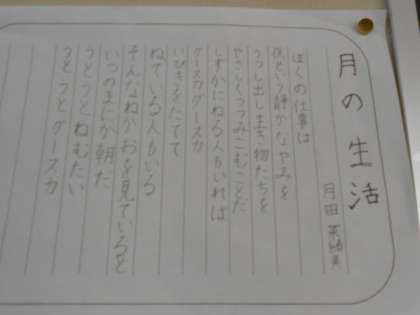 月の生活
月田 英緒美
ぼくの仕事は
夜という静かなやみを
うつし出しま宝物たちを
やさしくつつみこむことだ
しずかにねる人もいれば
グースカグースカ
いびきをたてて
ねている人もいる
そんなねがおを見ていると
いつのまにか朝だ
うとうとねむたい
うとうとグースカ